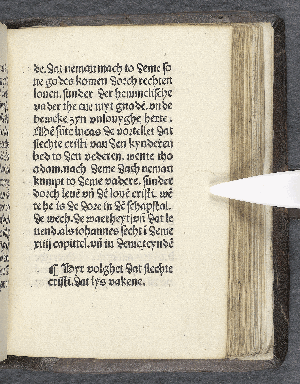 de. dat neman mach to deme so
ne godes komen dorch rechten
louen. sunder der hemmelsche
vader the eme myt gnade. vnde
beweke zyn vnlouyghe herte.
Mē süte lucas de vortellet dat
slechte cristi van den kynderen
bed to den vederen. wente tho
adam. nach deme dach neman
kumpt to deme vadere. sunder
dorch leuē vn̄ dē louē cristi. wē
te he is de dore in dē schapstal.
de wech. de waerheyt vn̄ dat le
uend. als iohannes secht i deme
xiiij capittel. vn̄ in deme eyndē
¶ Hyr volghet dat slechte
cristi. dat lys vakene.